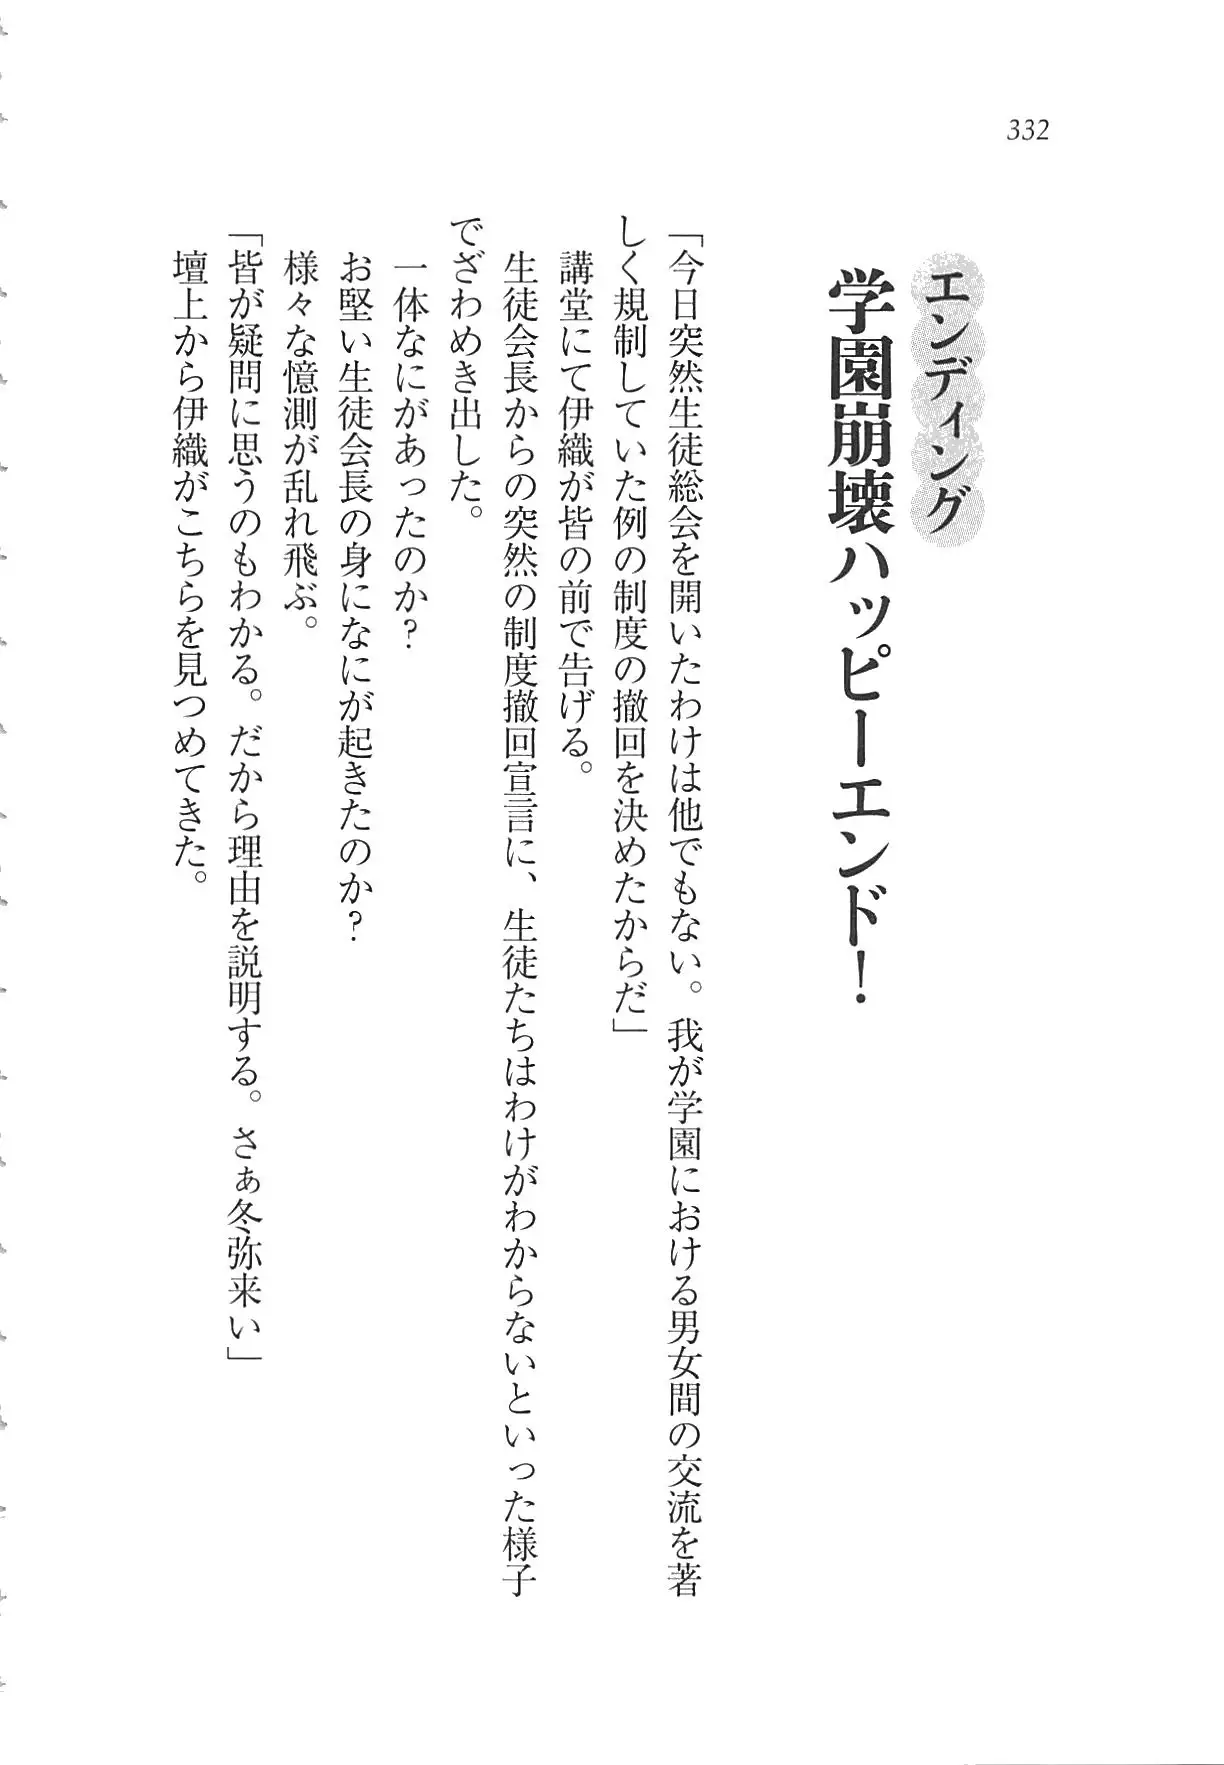 332
エンディング
学園崩壊ハッピーエンド！
「今日突然生徒総会を開いたわけは他でもない。我が学園における男女間の交流を著
しく規制していた例の制度の撤回を決めたからだ」
講堂にて伊織が皆の前で告げる。
生徒会長からの突然の制度撤回宣言に、生徒たちはわけがわからないといった様子
でざわめき出した。
一体なにがあったのか？
お堅い生徒会長の身になにが起きたのか？
様々な憶測が乱れ飛ぶ。
「皆が疑問に思うのもわかる。だから理由を説明する。さぁ冬弥来い」
壇上から伊織がこちらを見つめてきた。